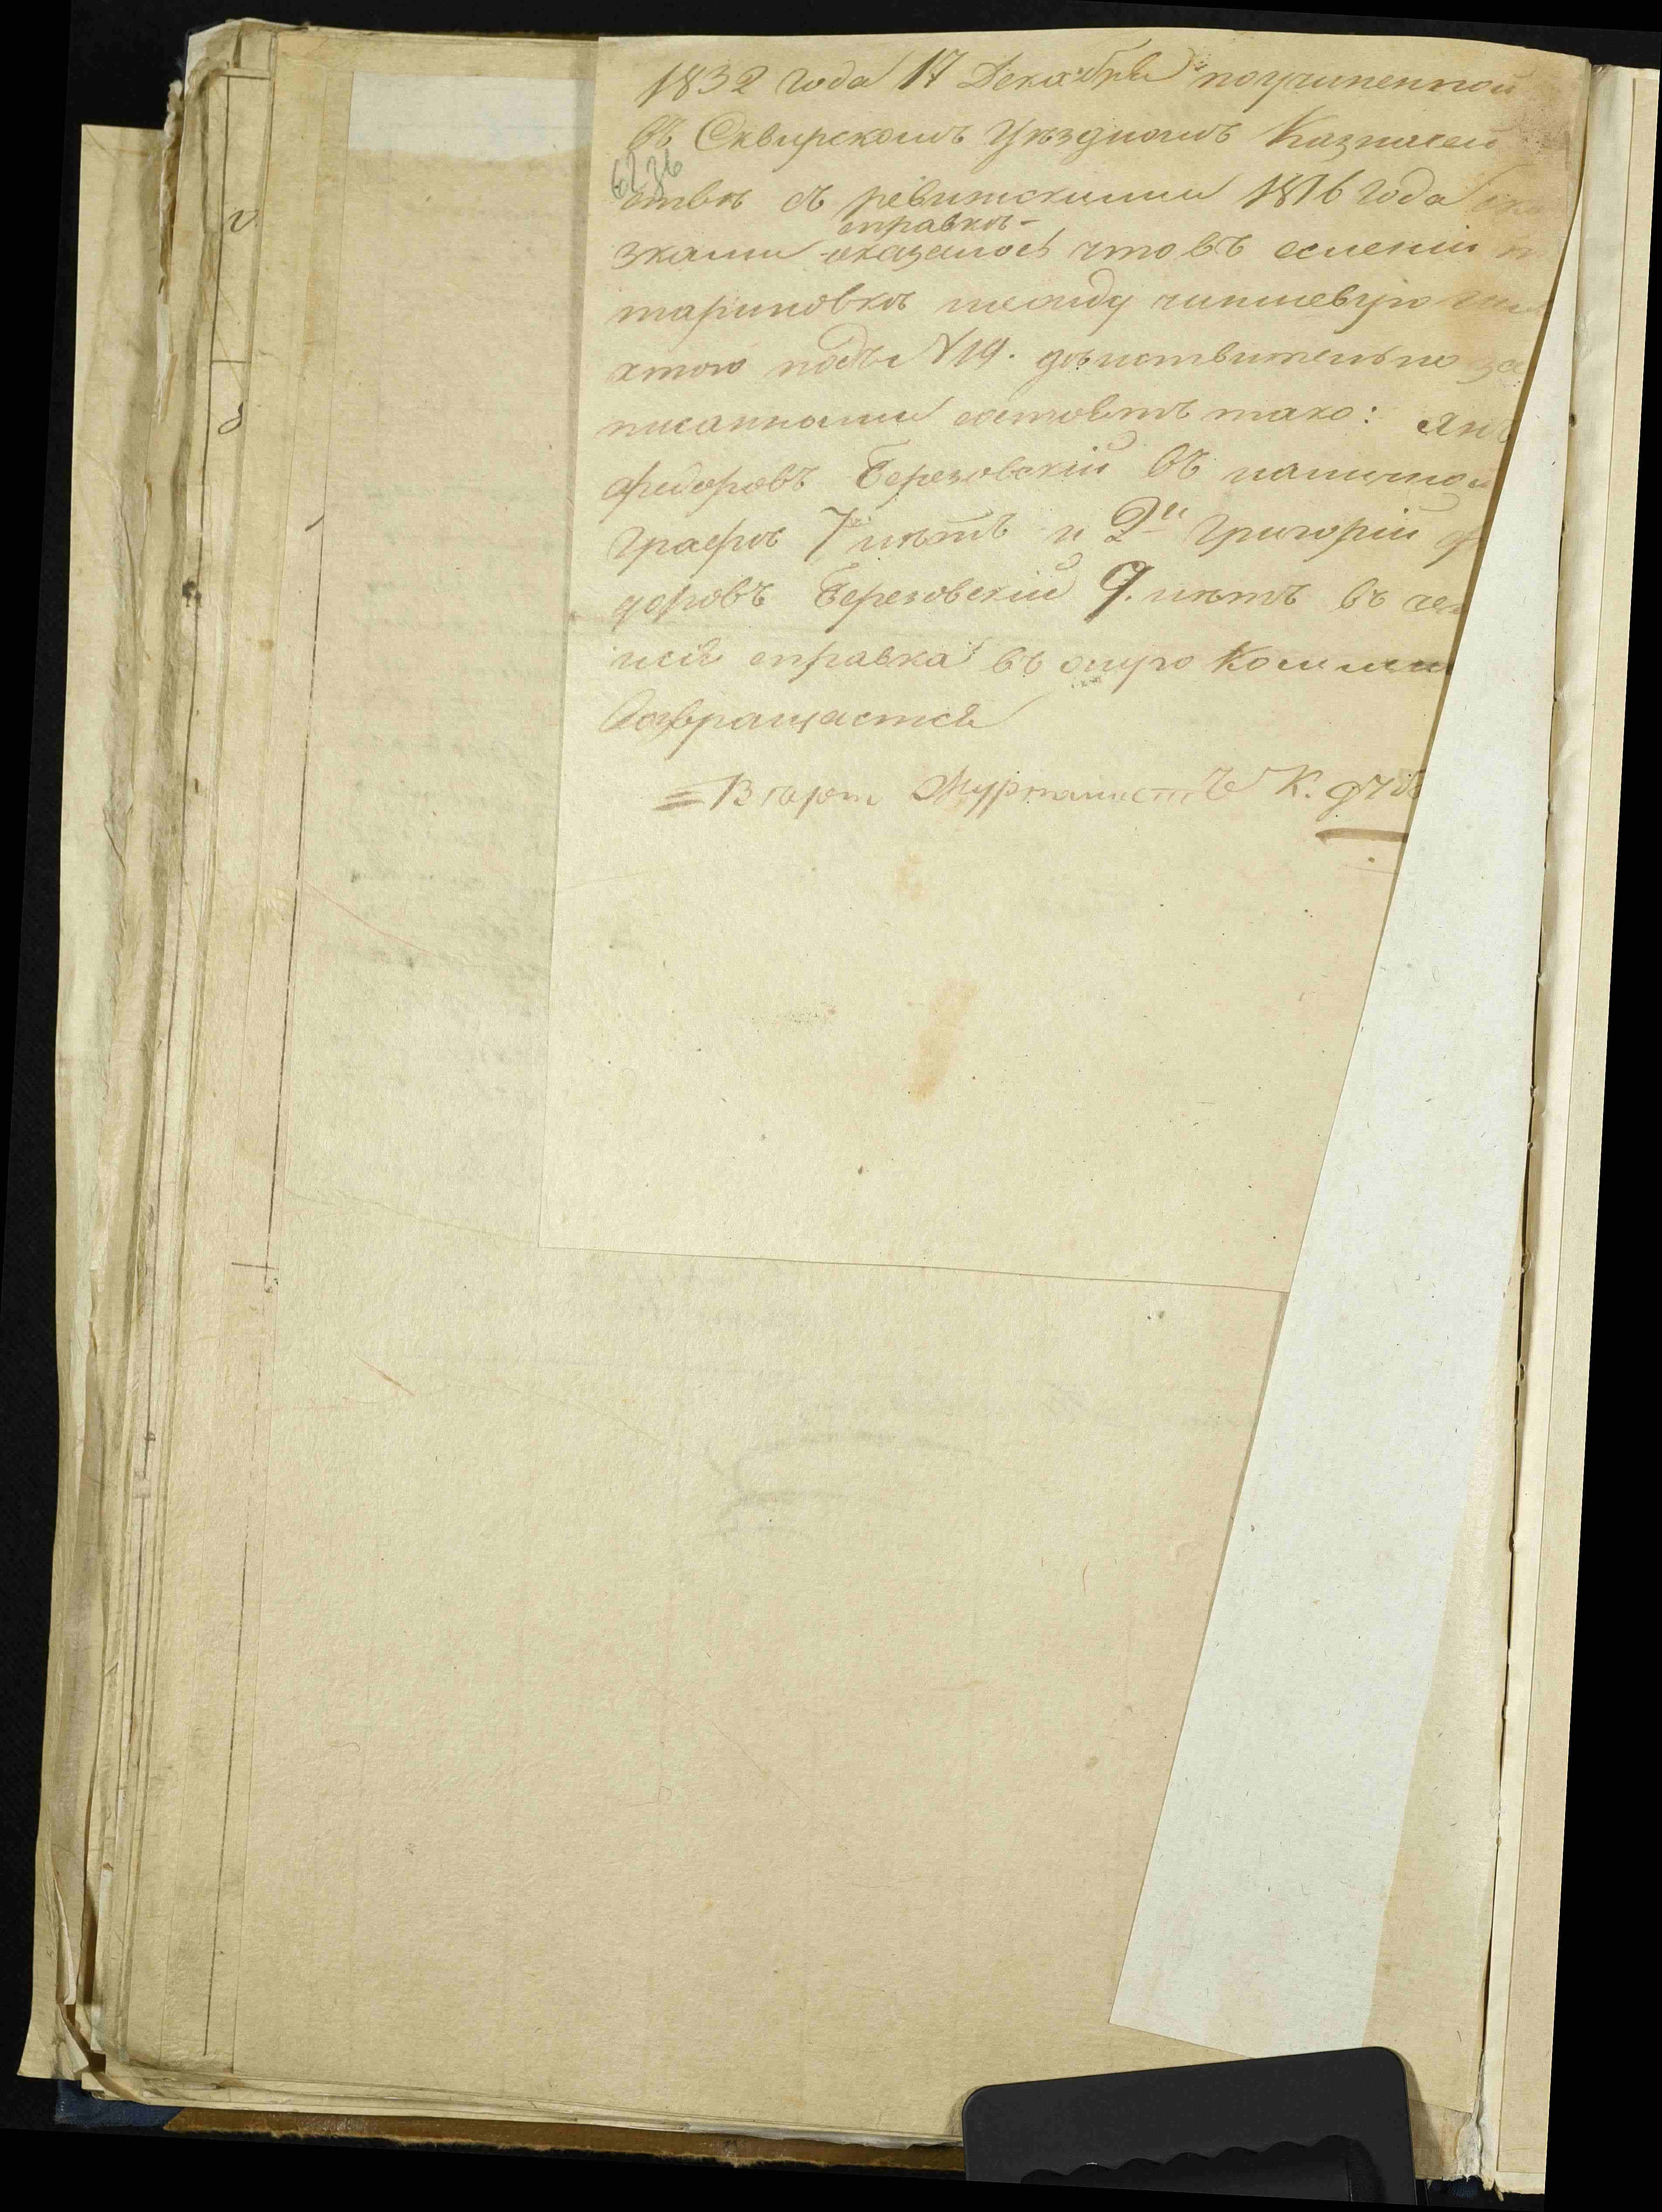 1832 года 17 Декабря поучиненной
въ Сквирскомъ Уѣздномъ Казначей
6236
ствѣ съ ревижскими 1816 года ска
справкѣ
зками оказалось что въ селеніи
тариновкѣ между чиншевую шля
хтою подъ N 19. дѣйствительно за
писанными состоятъ тако: Янъ
Федоровъ Березовскій въ наличной
графѣ 7 лѣтъ и 2й Григорій Фе
доровъ Березовскій 9. лѣтъ въ чем
и сія справка въ оную Коммис
Возвращается
Журналистъ К.